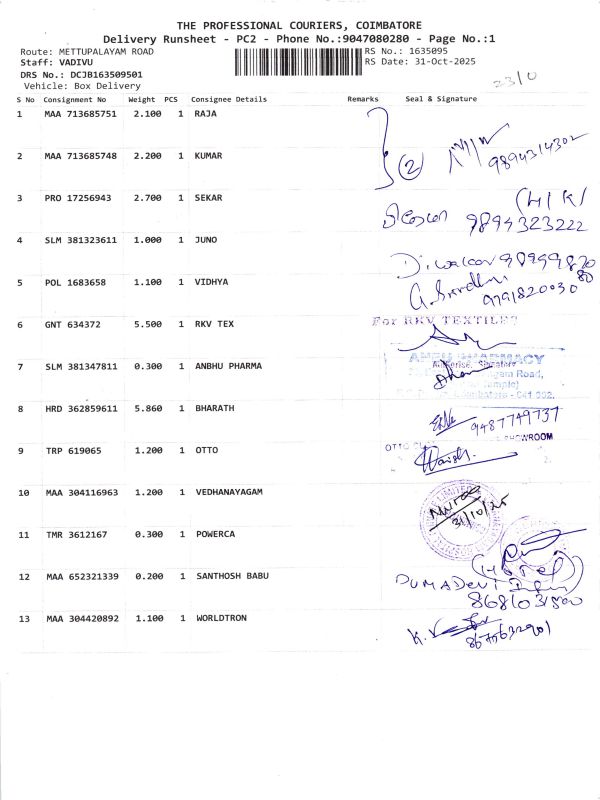 THE PROFESSIONAL COURIERS, COIMBATORE
Delivery Runsheet - PC2 - Phone No.:9047080280 - Page No.:1
Route: METTUPALAYAM ROAD RS No.: 1635095
Staff: VADIVU RS Date: 31-Oct-2025
DRS No.: DCJB163509501
Vehicle: Box Delivery
S No Consignment No Weight PCS Consignee Details Remarks Seal & Signature
1 MAA 713685751 2.100 1 RAJA
2 MAA 713685748 2.200 1 KUMAR 2 9894314302
3 PRO 17256943 2.700 1 SEKAR
9894323222
4 SLM 381323611 1.000 1 JUNO
5 POL 1683658 1.100 1 VIDHYA
9791820030
6 GNT 634372 5.500 1 RKV TEX For RKV TEXTILE
7 SLM 381347811 0.300 1 ANBHU PHARMACY
8 HRD 362859611 5.860 1 BHARATH 9487749737
SHOWROOM
9 TRP 619065 1.200 1 OTTO Harish.
10 MAA 304116963 1.200 1 VEDHANAYAGAM 31/10/25
11 TMR 3612167 0.300 1 POWERCA
12 MAA 652321339 0.200 1 SANTHOSH BABU
13 MAA 304420892 1.100 1 WORLDTRON